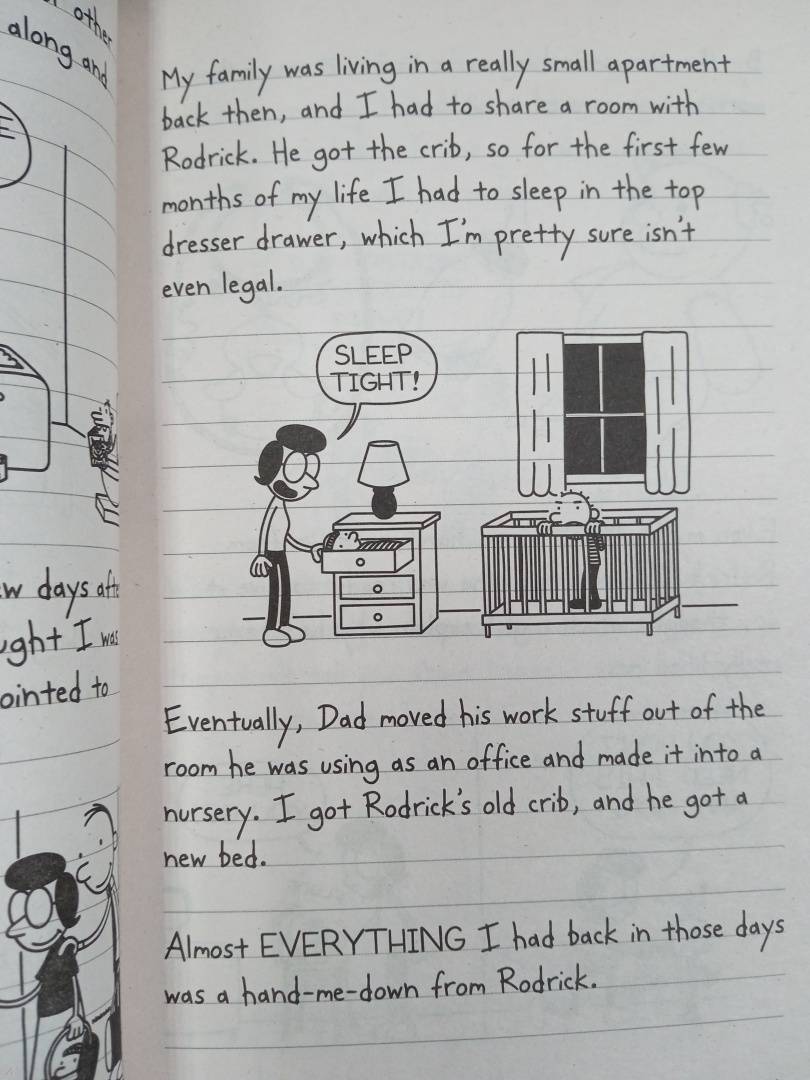 other
along and
E
w days afte
ught I was
ointed to
My family was living in a really small apartment
back then, and I had to share a room with
Rodrick. He got the crib, so for the first few
months of my life I had to sleep in the top
dresser drawer, which I'm pretty sure isn't
even legal.
SLEEP
TIGHT!
Eventually, Dad moved his work stuff out of the
room he was using as an office and made it into a
nursery. I got Rodrick's old crib, and he got a
new bed.
Almost EVERYTHING I had back in those days
was a hand-me-down from Rodrick.